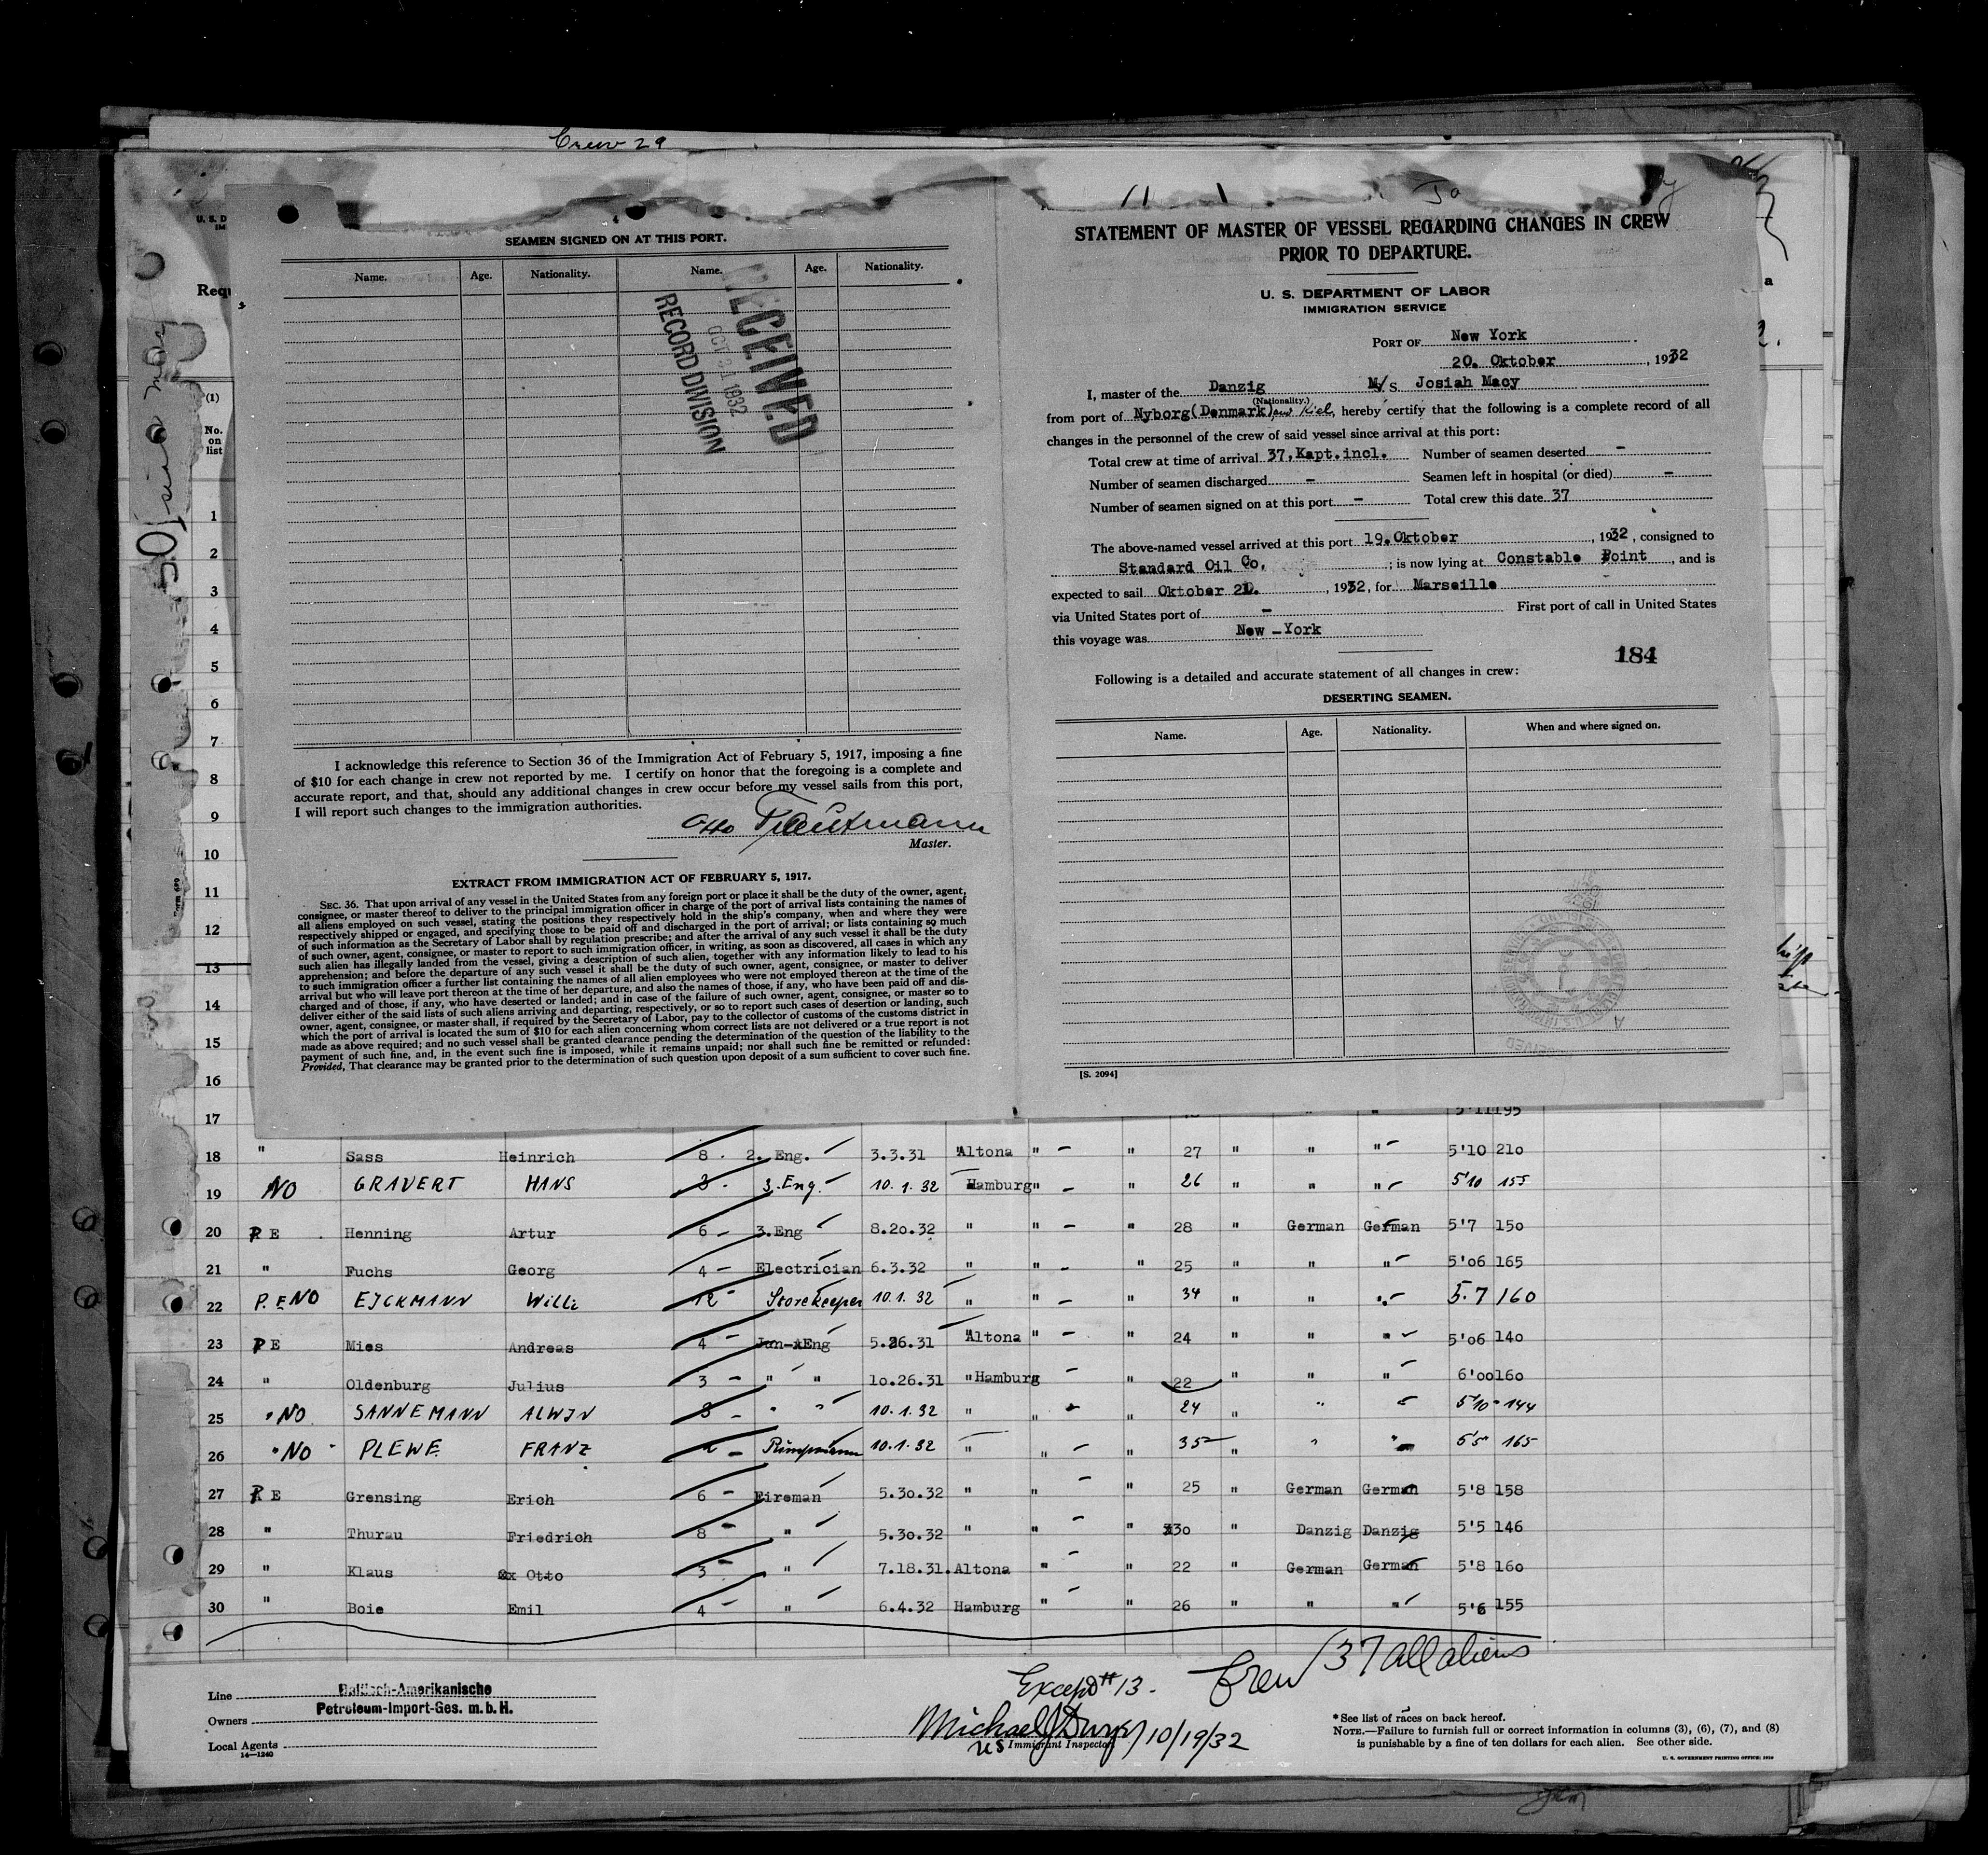 Crew 29
SEAMEN SIGNED ON AT THIS PORT.
Name. Age. Nationality. Name. Age. Nationality.
RECEIVED
OCT 1932
RECORD DIVISION
I acknowledge this reference to Section 36 of the Immigration Act of February 5, 1917, imposing a fine
of $10 for each change in crew not reported by me. I certify on honor that the foregoing is a complete and
accurate report, and that, should any additional changes in crew occur before my vessel sails from this port,
I will report such changes to the immigration authorities.
Otto Trautmann
Master.
EXTRACT FROM IMMIGRATION ACT OF FEBRUARY 5, 1917.
SEC. 36. That upon arrival of any vessel in the United States from any foreign port or place it shall be the duty of the owner, agent,
consignee, or master thereof to deliver to the principal immigration officer in charge of the port of arrival lists containing the names of
all aliens employed on such vessel, stating the positions they respectively hold in the ship's company, when and where they were
respectively shipped or engaged, and specifying those to be paid off and discharged in the port of arrival; or lists containing so much
of such information as the Secretary of Labor shall by regulation prescribe; and after the arrival of any such vessel it shall be the duty
of such owner, agent, consignee, or master to report to such immigration officer, in writing, as soon as discovered, all cases in which any
such alien has illegally landed from the vessel, giving a description of such alien, together with any information likely to lead to his
apprehension; and before the departure of any such vessel it shall be the duty of such owner, agent, consignee, or master to deliver
to such immigration officer a further list containing the names of all alien employees who were not employed thereon at the time of the
arrival but who will leave port thereon at the time of her departure, and also the names of those, if any, who have been paid off and dis-
charged and of those, if any, who have deserted or landed; and in case of the failure of such owner, agent, consignee, or master so to
deliver either of the said lists of such aliens arriving and departing, respectively, or so to report such cases of desertion or landing, such
owner, agent, consignee, or master shall, if required by the Secretary of Labor, pay to the collector of customs of the customs district in
which the port of arrival is located the sum of $10 for each alien concerning whom correct lists are not delivered or a true report is not
made as above required; and no such vessel shall be granted clearance pending the determination of the question of the liability to the
payment of such fine, and, in the event such fine is imposed, while it remains unpaid; nor shall such fine be remitted or refunded:
Provided, That clearance may be granted prior to the determination of such question upon deposit of a sum sufficient to cover such fine.
STATEMENT OF MASTER OF VESSEL REGARDING CHANGES IN CREW
PRIOR TO DEPARTURE.
U. S. DEPARTMENT OF LABOR
IMMIGRATION SERVICE
PORT OF New York
20. Oktober, 1932
I, master of the Danzig M/S. Josiah Macy
(Nationality.)
from port of Nyborg(Denmark) Kiel, hereby certify that the following is a complete record of all
changes in the personnel of the crew of said vessel since arrival at this port:
Total crew at time of arrival 37, Kapt.incl. Number of seamen deserted -
Number of seamen discharged - Seamen left in hospital (or died) -
Number of seamen signed on at this port - Total crew this date 37
The above-named vessel arrived at this port 19.Oktober, 1932, consigned to
Standard Oil Co, ; is now lying at Constable Point, and is
expected to sail Oktober 20., 1932, for Marseille
via United States port of - First port of call in United States
this voyage was New -York
184
Following is a detailed and accurate statement of all changes in crew:
DESERTING SEAMEN.
Name. Age. Nationality. When and where signed on.
[S. 2094]
U. S. D
IM
Requ
(1)
No.
on
list
1
2
3
4
5
6
7
8
9
10
11
12
13
14
15
16
17 5'11 195
18 " Sass Heinrich 8 2. Eng. 3.3.31 "Altona " " 27 " " " 5'10 210
19 NO GRAVERT HANS 3. Eng. 10.1.32 Hamburg " " 26 " " " 5'10 155
20 P E Henning Artur 6 3.Eng 8.20.32 " " " 28 " German German 5'7 150
21 " Fuchs Georg 4 Electrician 6.3.32 " " " 25 " " " 5'06 165
22 P.E NO EJCKMANN Willi 12 Storekeeper 10.1.32 " " " 34 " " " 5.7 160
23 P E Mies Andreas 4 Jun-Eng 5.26.31 "Altona " " 24 " " " 5'06 140
24 " Oldenburg Julius 3 " " 10.26.31 "Hamburg " 22 " " " 6'00 160
25 " NO SANNEMANN ALWJN 3 " " 10.1.32 " " " 24 " " 5'10" 144
26 " NO PLEWE FRANZ Pumpmann 10.1.32 " " " 35 " " " 5'5" 165
27 P E Grensing Erich 6 Fireman 5.30.32 " " " 25 " German German 5'8 158
28 " Thurau Friedrich 8 " 5.30.32 " " " 30 " Danzig Danzig 5'5 146
29 " Klaus Otto 3 " 7.18.31. Altona " " 22 " German German 5'8 160
30 " Boie Emil 4 " 6.4.32 Hamburg " " 26 " " " 5'6 155
Crew 37 all aliens
Except # 13.
Line Baltisch-Amerikanische
Petroleum-Import-Ges. m.b.H.
Owners
Local Agents
14—1240
10/19/32
US Immigrant Inspector
* See list of races on back hereof.
NOTE.—Failure to furnish full or correct information in columns (3), (6), (7), and (8)
is punishable by a fine of ten dollars for each alien. See other side.
U. S. GOVERNMENT PRINTING OFFICE: